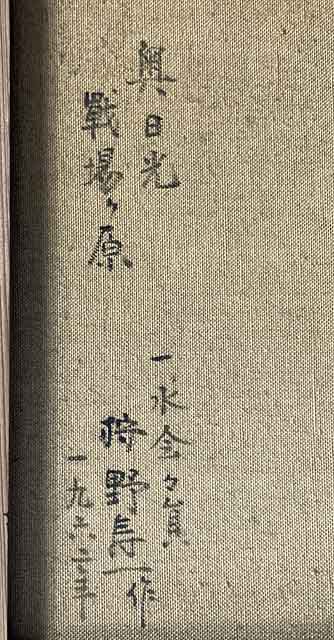 奥日光
戰場ヶ原
一水会々員
狩野壽一作
一九六二年